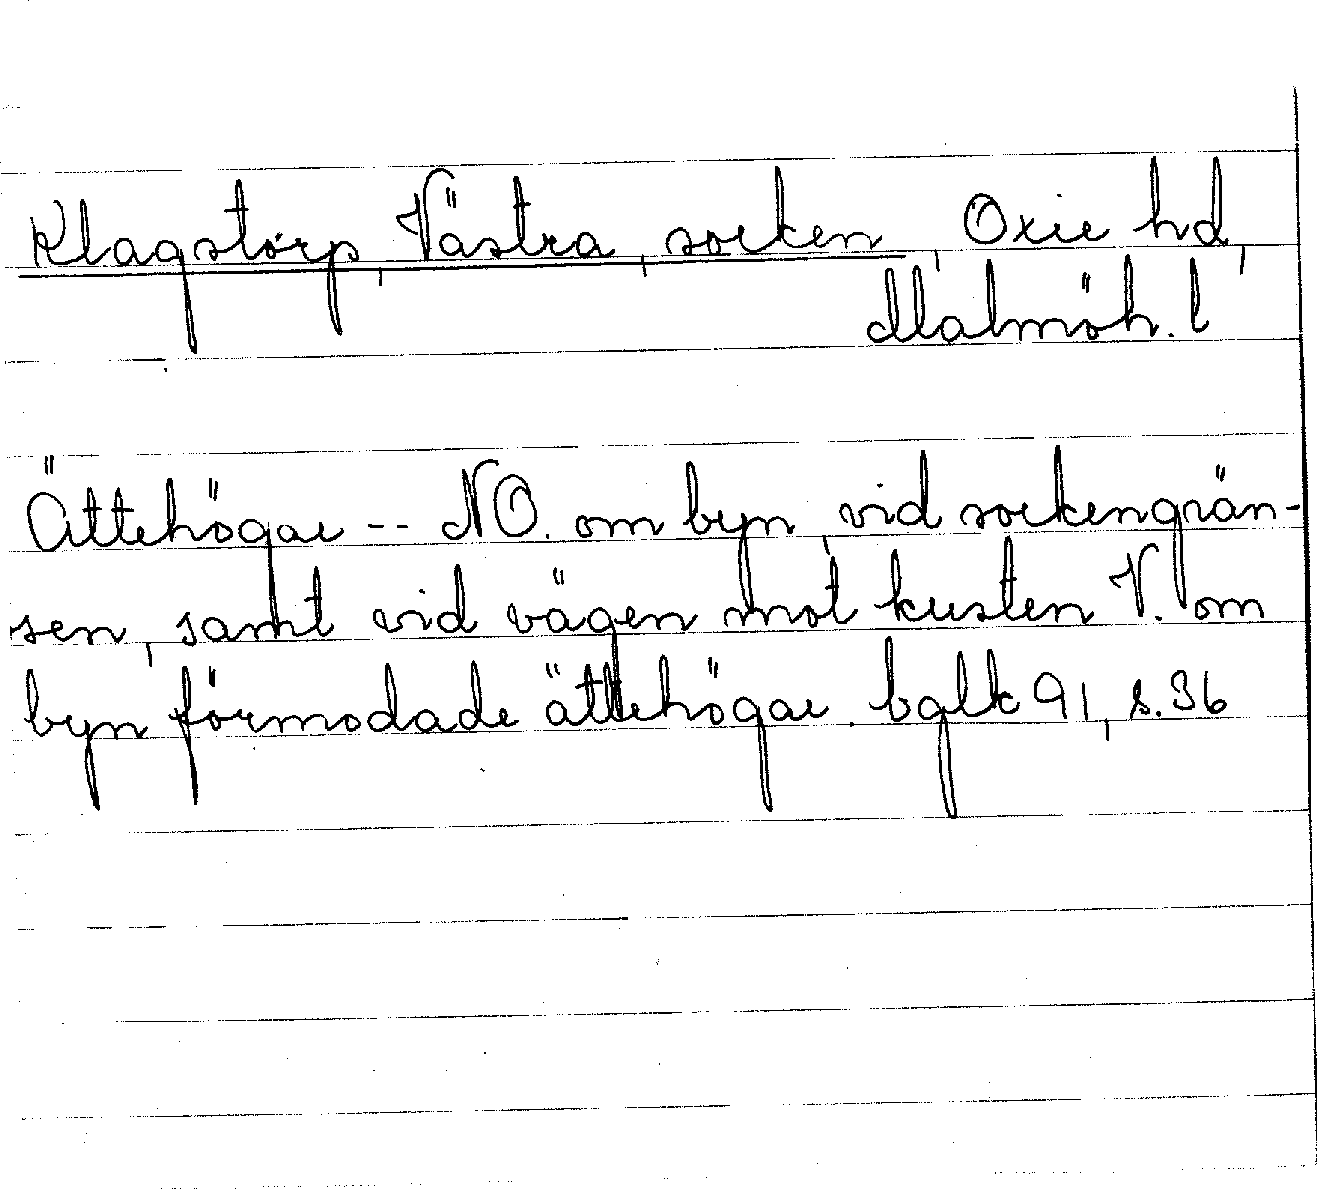 Klagstorp, Västra, socken, Oxie hd,
Malmöh. l
Ättehögar -- NO. om byn, vid sockengrän-
sen, samt vid vägen mot kusten V. om
byn förmodade ättehögar. bglk 91, s. 36